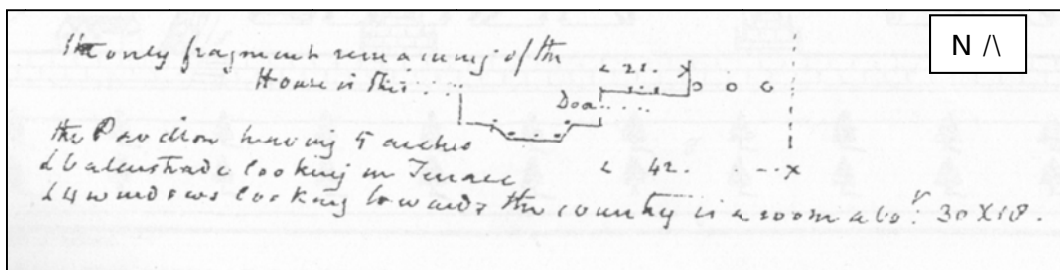 the only fragment remaining of the
House is this.....
N /\
< 21. X
Door.....
the Pavilion having 5 arches
& balustrade looking on Terrace
< 42. . . - - X
& 4 windows looking towards the country is a room abo:ᵗ 30 X 18.